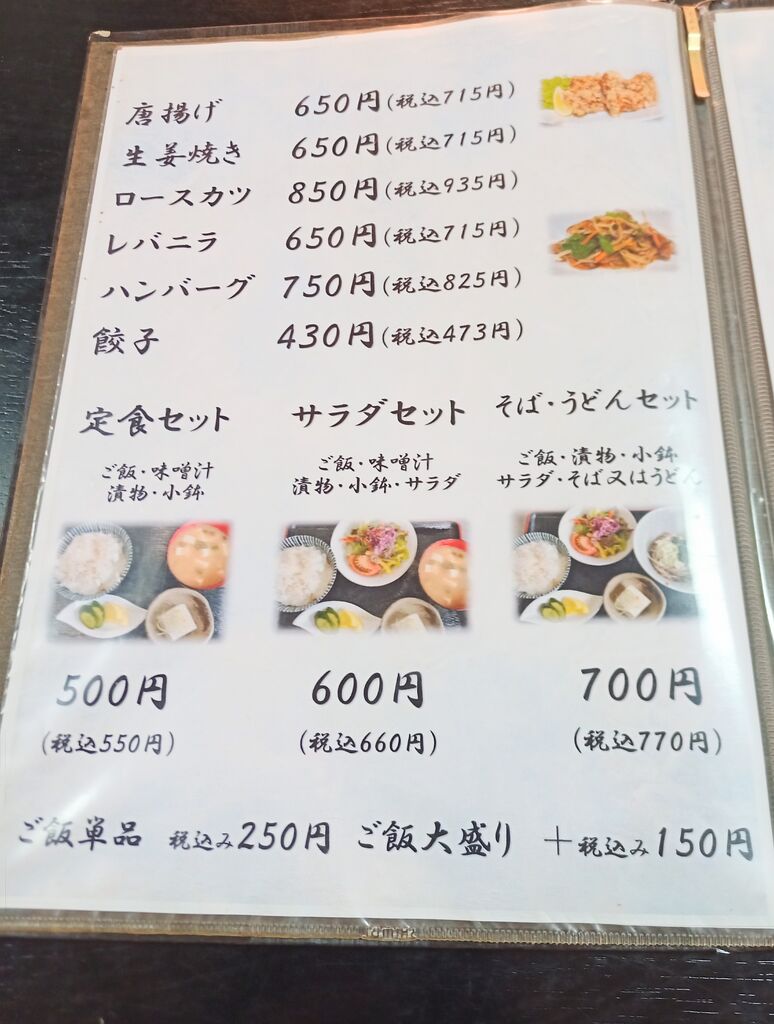 唐揚げ 650円(税込715円)
生姜焼き 650円(税込715円)
ロースカツ 850円(税込935円)
レバニラ 650円(税込715円)
ハンバーグ 750円(税込825円)
餃子 430円(税込473円)
定食セット サラダセット そば・うどんセット
ご飯・味噌汁
漬物・小鉢
ご飯・味噌汁
漬物・小鉢・サラダ
ご飯・漬物・小鉢
サラダ・そば又はうどん
500円 600円 700円
(税込550円) (税込660円) (税込770円)
ご飯単品 税込み250円 ご飯大盛り +税込み150円